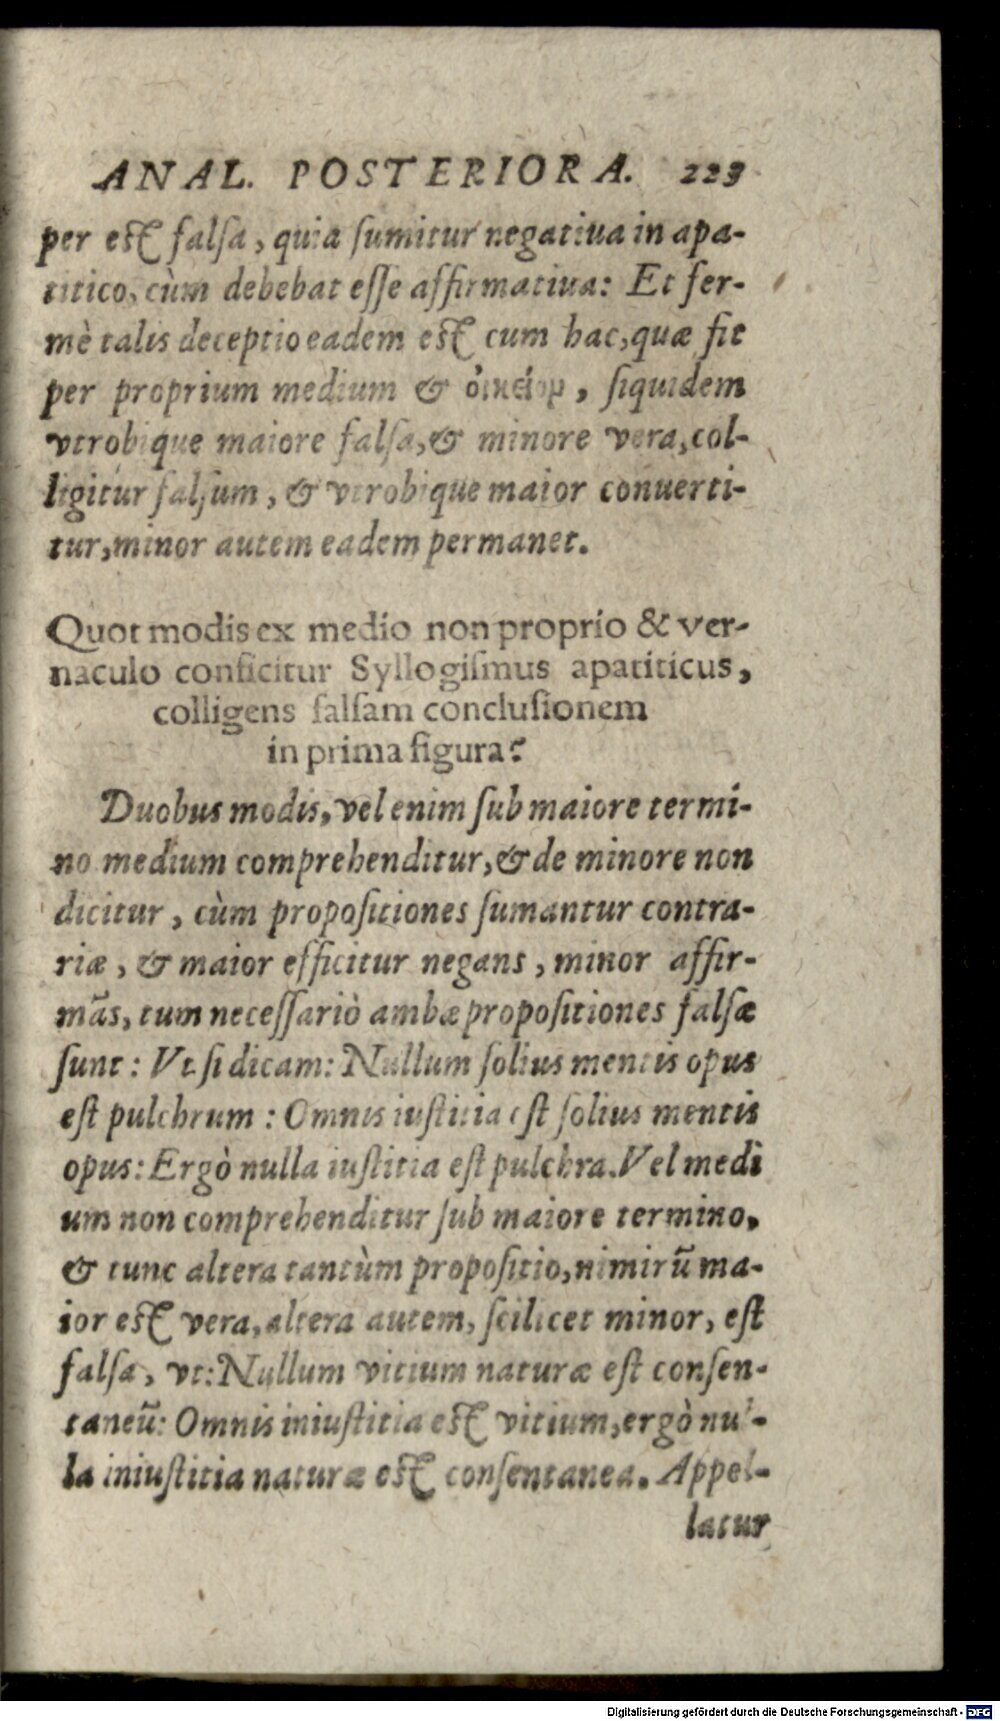 ANAL. POSTERIORA. 223
per est falsa, quia sumitur negatiua in apa-
titico, cùm debebat esse affirmatiua: Et fer-
mè talis deceptio eadem est cum hac, quæ fit
per proprium medium & ὀικείομ, siquidem
vtrobique maiore falsa, & minore vera, col-
ligitur falsum, & vtrobique maior conuerti-
tur, minor autem eadem permanet.
Quot modis ex medio non proprio & ver-
naculo conficitur Syllogismus apatiticus,
colligens falsam conclusionem
in prima figura?
Duobus modis, vel enim sub maiore termi-
no medium comprehenditur, & de minore non
dicitur, cùm propositiones sumantur contra-
riæ, & maior efficitur negans, minor affir-
mās, tum necessariò ambæ propositiones falsæ
sunt: Vt si dicam: Nullum solius mentis opus
est pulchrum: Omnis iustitia est solius mentis
opus: Ergò nulla iustitia est pulchra. Vel medi
um non comprehenditur sub maiore termino,
& tunc altera tantùm propositio, nimirū ma-
ior est vera, altera autem, scilicet minor, est
falsa, vt: Nullum vitium naturæ est consen-
taneū: Omnis iniustitia est vitium, ergò nul-
la iniustitia naturæ est consentanea. Appel-
latur
Digitalisierung gefördert durch die Deutsche Forschungsgemeinschaft - DFG